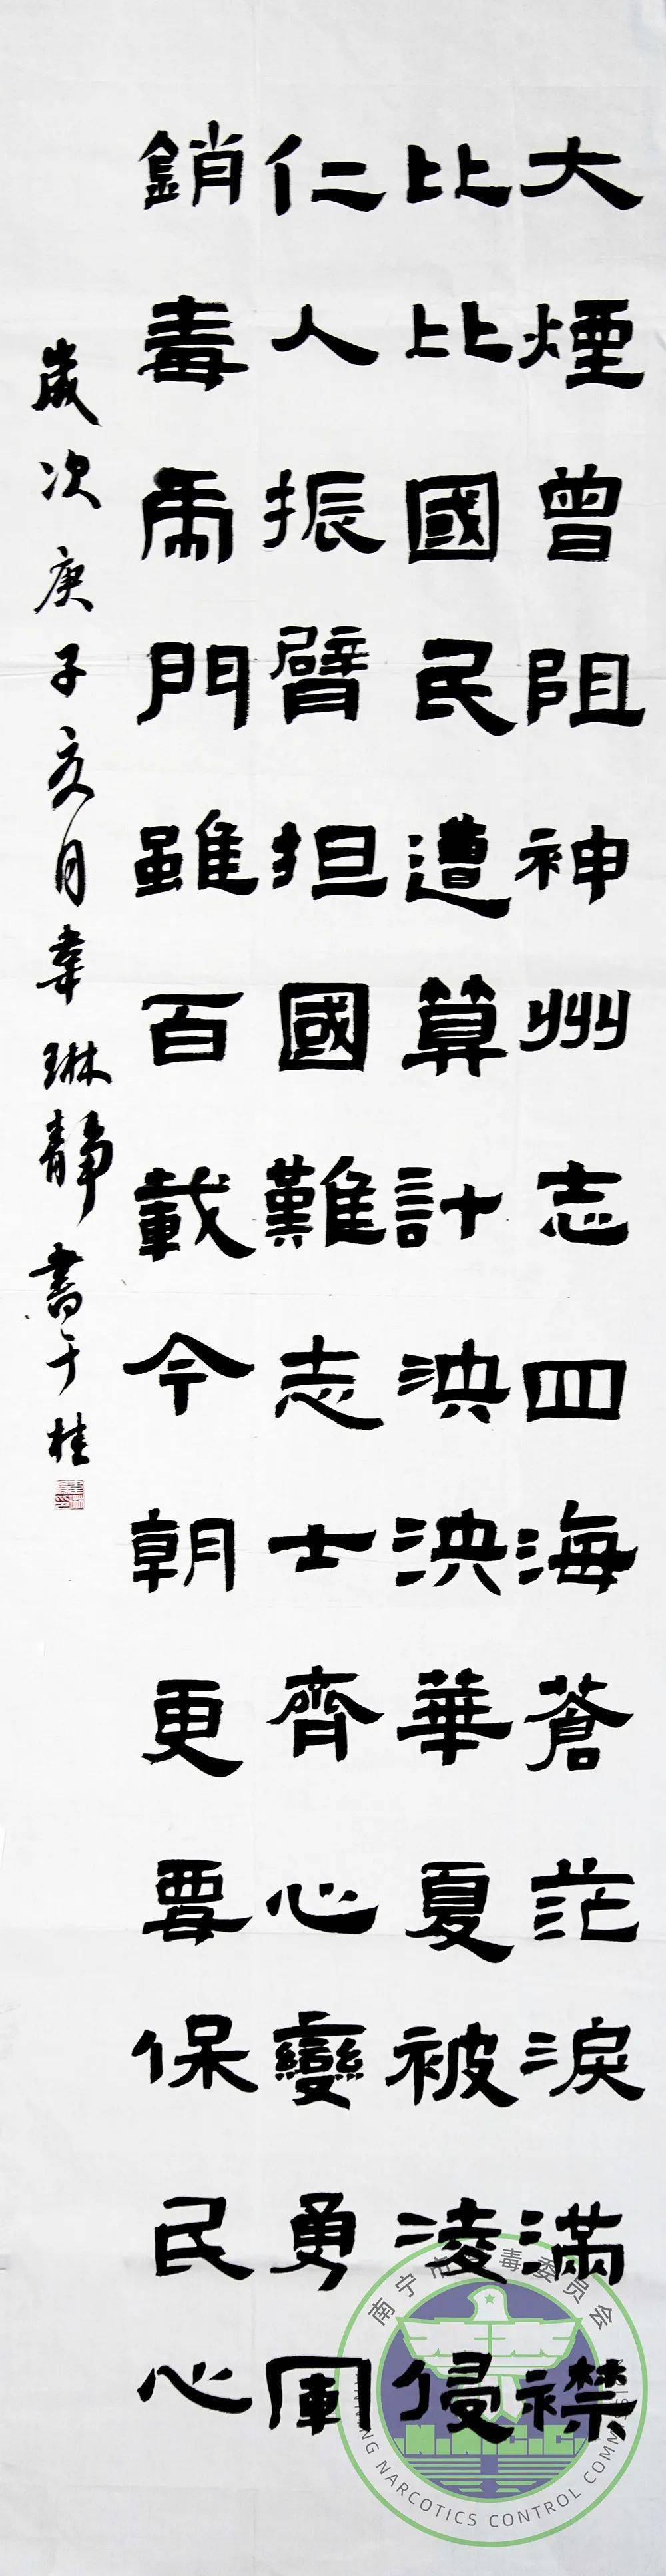 大煙曾阻神州志四海蒼茫淚滿襟
比比國民遭算計泱泱華夏被凌侵
仁人振臂担國難志士齊心變勇軍
銷毒虎門雖百載今朝更要保民心
歲次庚子亥月韋琳靜書于桂
南宁市禁毒委员会
NANNING NARCOTICS CONTROL COMMISSION
N.N.C.C